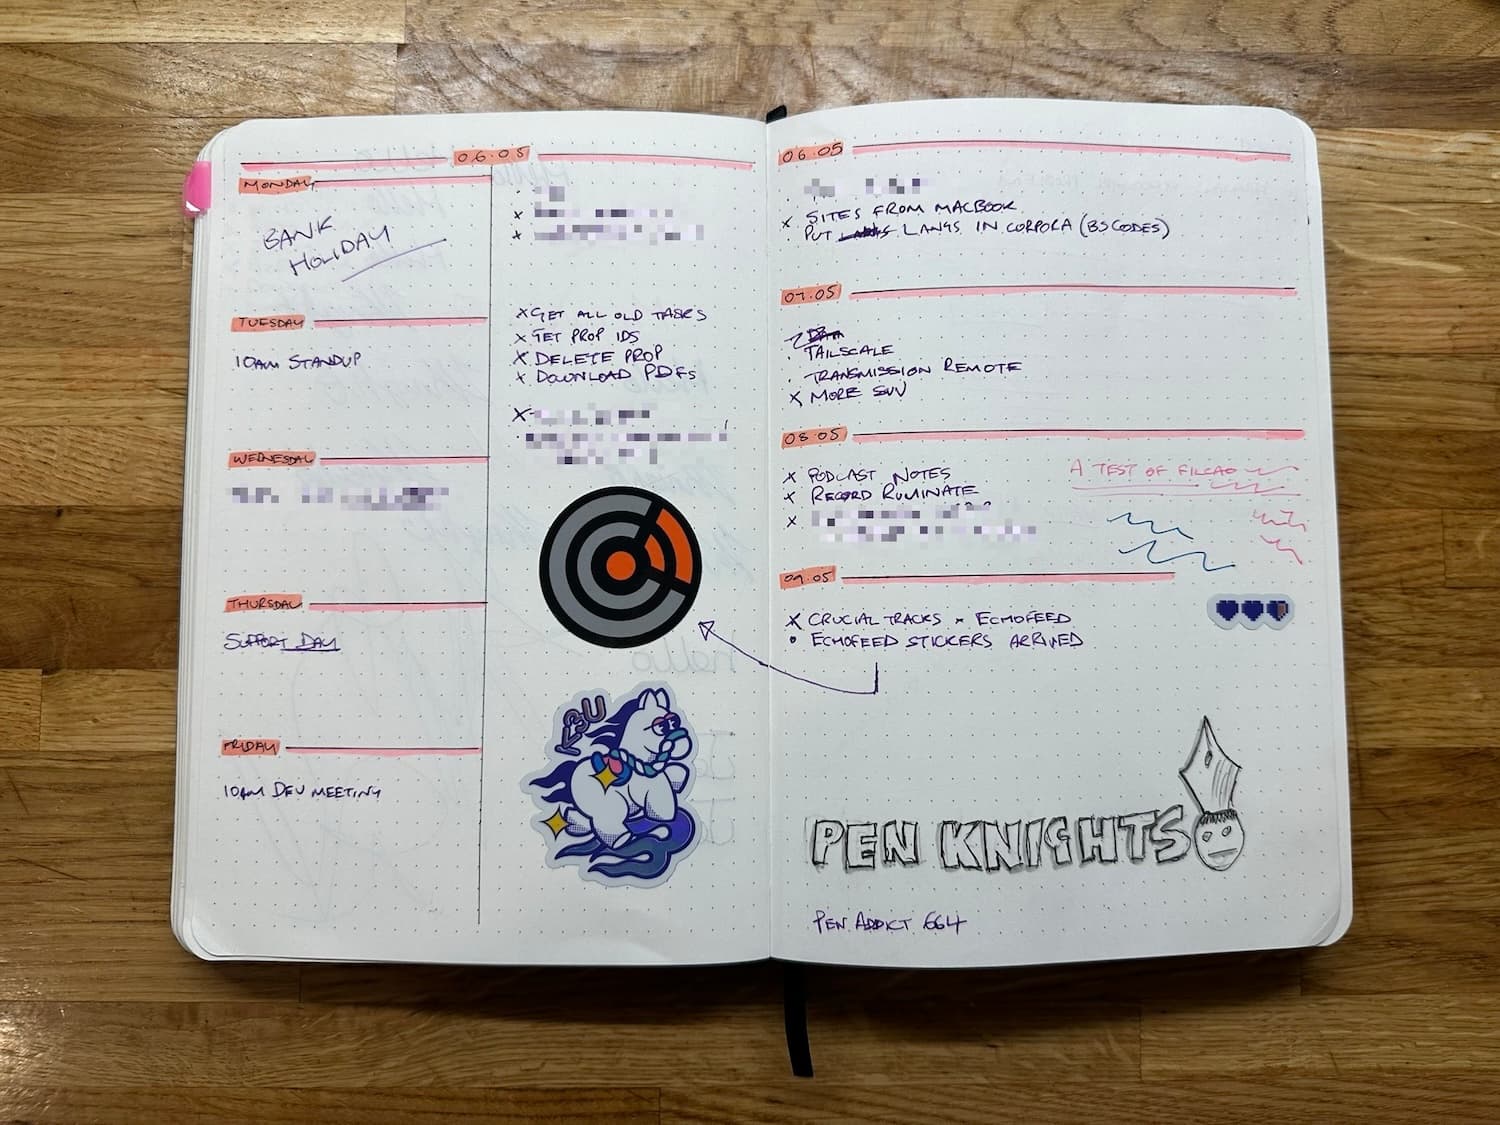 06.05
MONDAY
BANK
HOLIDAY
TUESDAY
10AM STANDUP
WEDNESDAY
THURSDAY
SUPPORT DAY
FRIDAY
10AM DEV MEETING
X GET ALL OLD TASKS
X GET PROP IDS
X DELETE PROP
X DOWNLOAD PDFS
hello
06.05
X SITES FROM MACBOOK
. PUT LANGS IN CORPORA (BSCODES)
07.05
. TAILSCALE
. TRANSMISSION REMOTE
X MORE SUV
08.05
X PODCAST NOTES
X RECORD RUMINATE
A TEST OF FILCAO
09.05
X CRUCIAL TRACKS × ECHOFEED
• ECHOFEED STICKERS ARRIVED
PEN KNIGHTS
PEN ADDICT 664